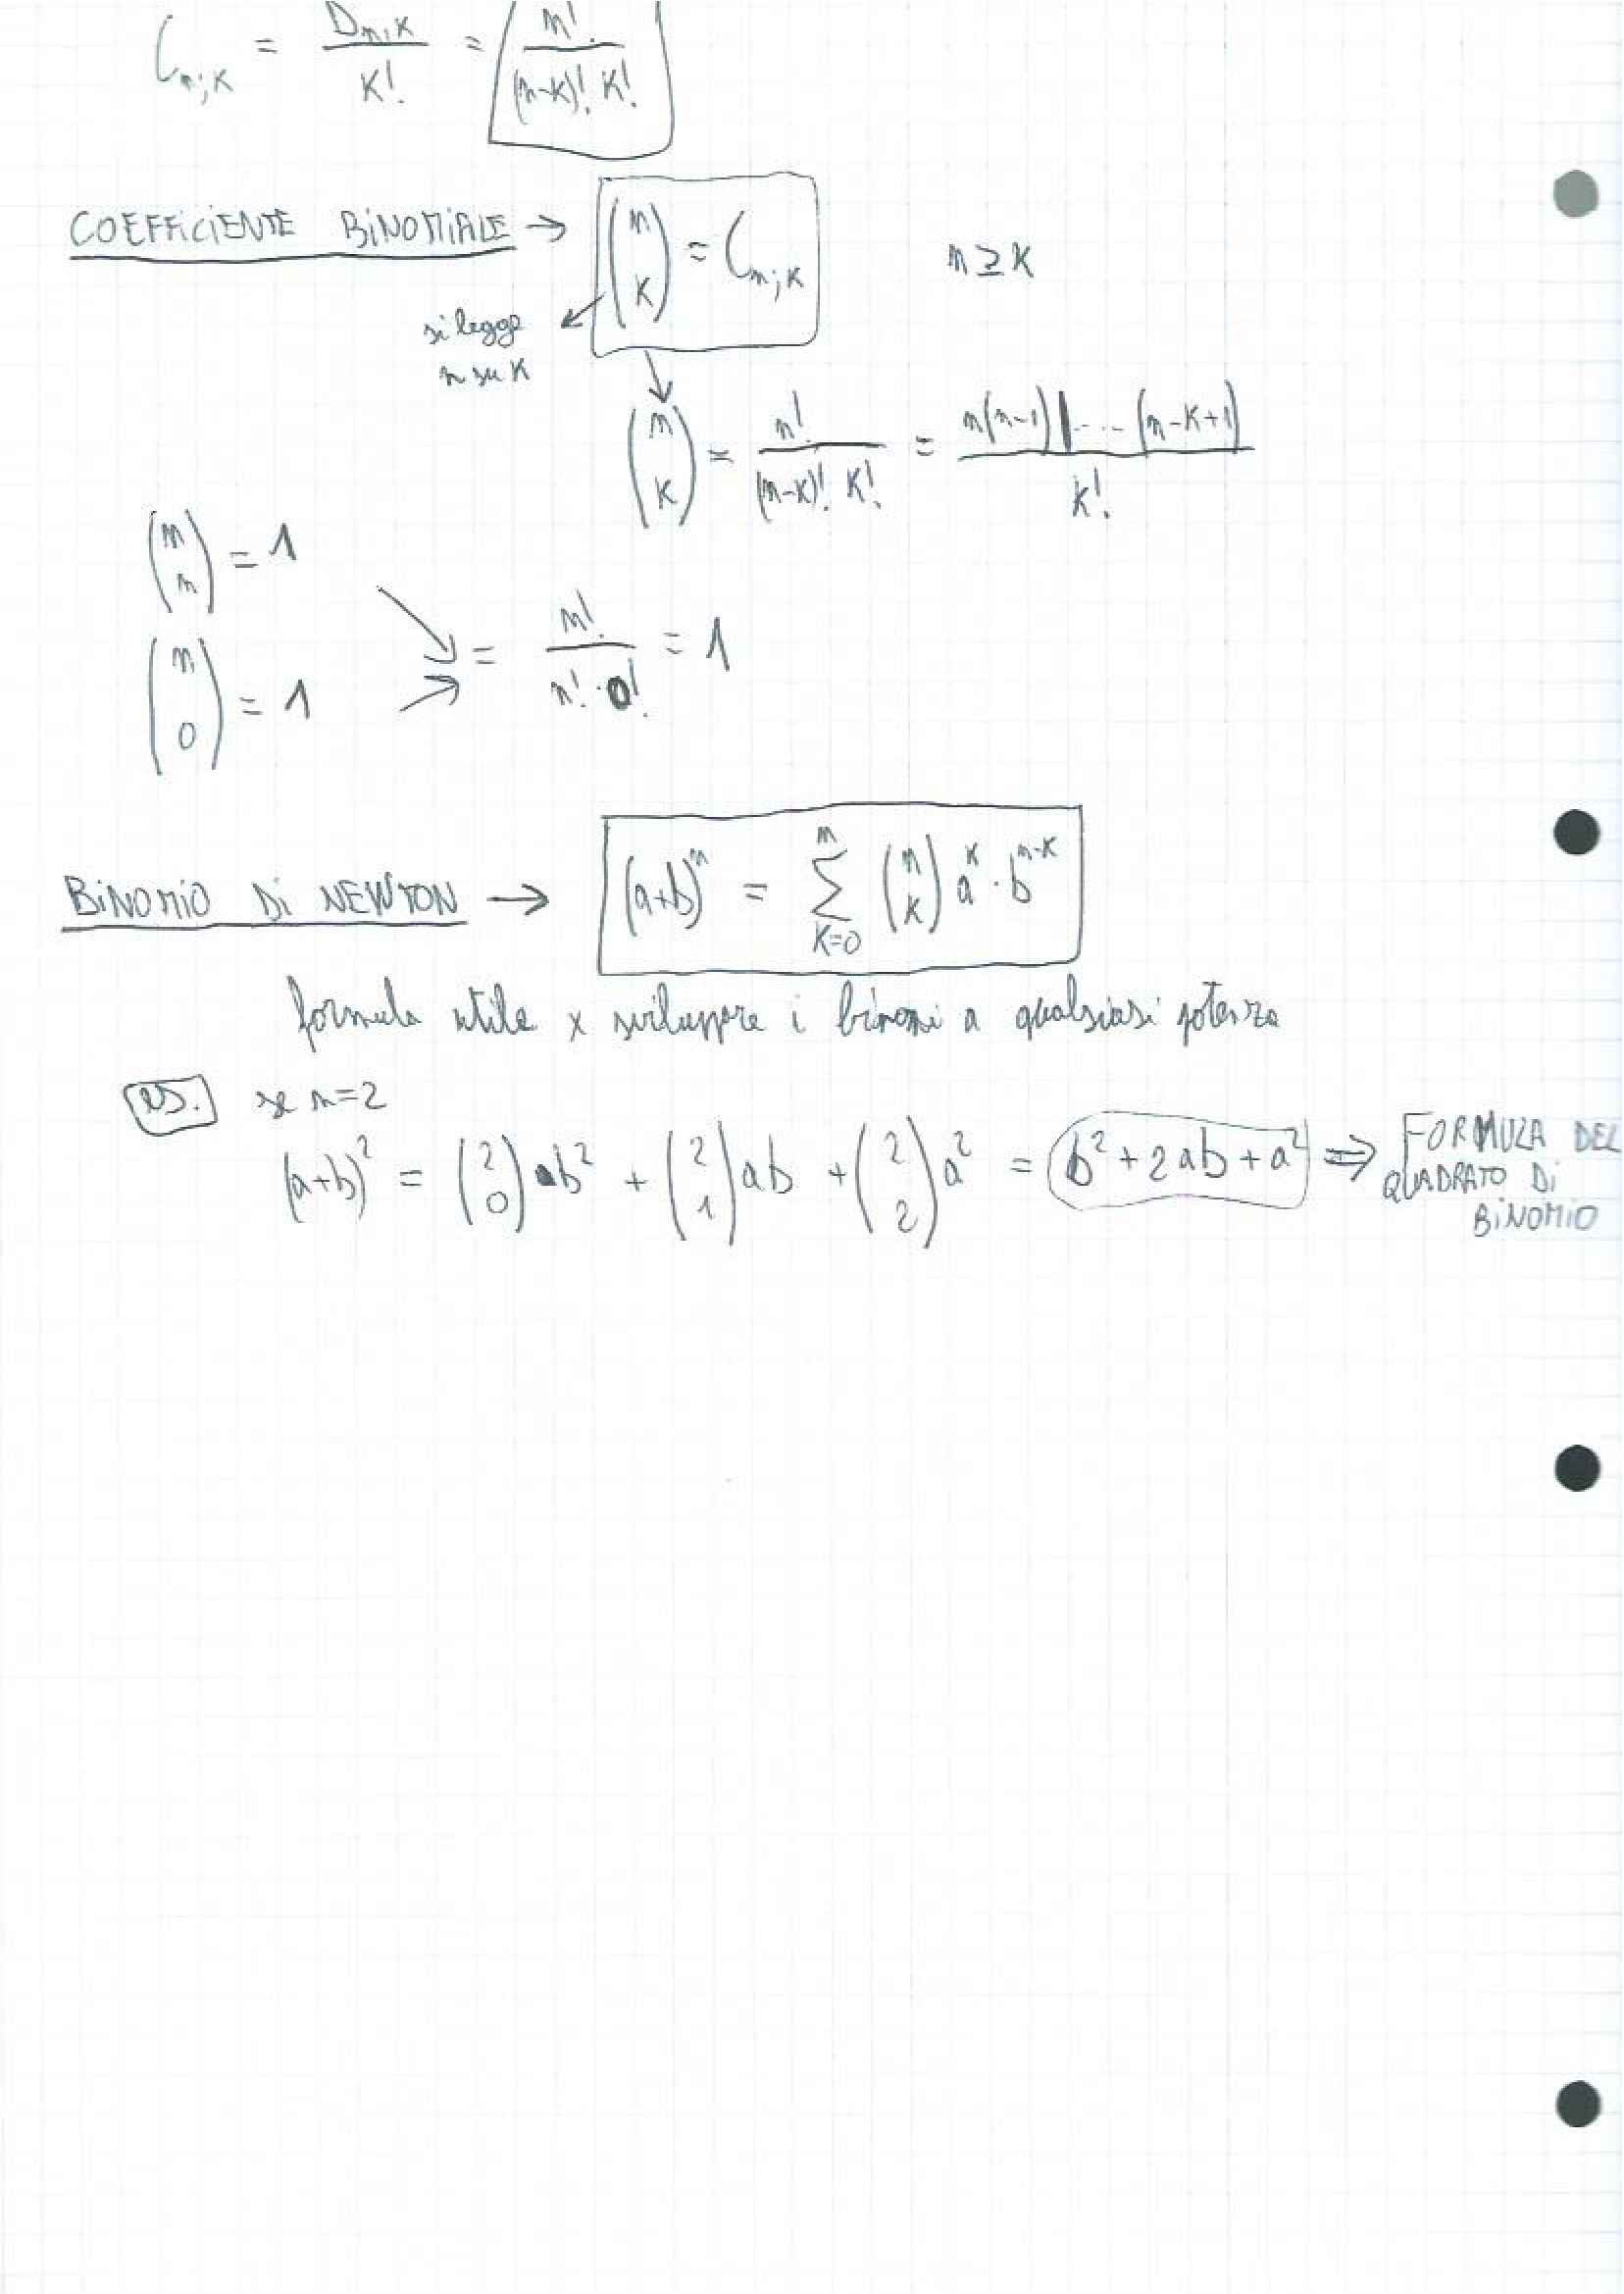 C_{n;K} = D_{n,K} / K! = n! / (n-K)! K!
COEFFICIENTE BINOMIALE → (n K) = C_{n;K} n ≥ K
si legge
n su K
(n K) = n! / (n-K)! K! = n(n-1) ... (n-K+1) / K!
(n n) = 1
= n! / n! · 0! = 1
(n 0) = 1
BINOMIO DI NEWTON → (a+b)^n = Σ_{K=0}^{n} (n K) a^K · b^{n-K}
formula utile x sviluppare i binomi a qualsiasi potenza
es. se n=2
(a+b)² = (2 0) b² + (2 1) ab + (2 2) a² = b² + 2ab + a² ⇒ FORMULA DEL
QUADRATO DI
BINOMIO